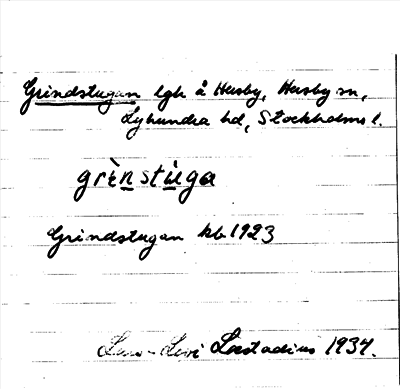 Grindstugan lgh å Husby, Husby sn,
Lyhundra hd, Stockholms l.
grè̀nstùga
Grindstugan kb 1923
Lars-Levi Læstadius 1934.